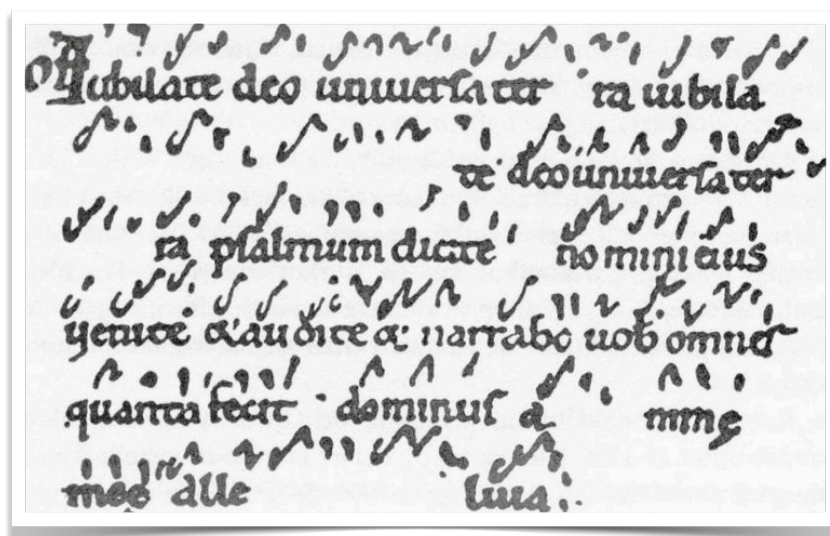 Of Iubilate deo universa ter ra iubila
te deo universa ter
ra psalmum dicite nomini eius
venite & audite & narrabo vob omnes
quanta fecit dominus a nime
meę alle luia.